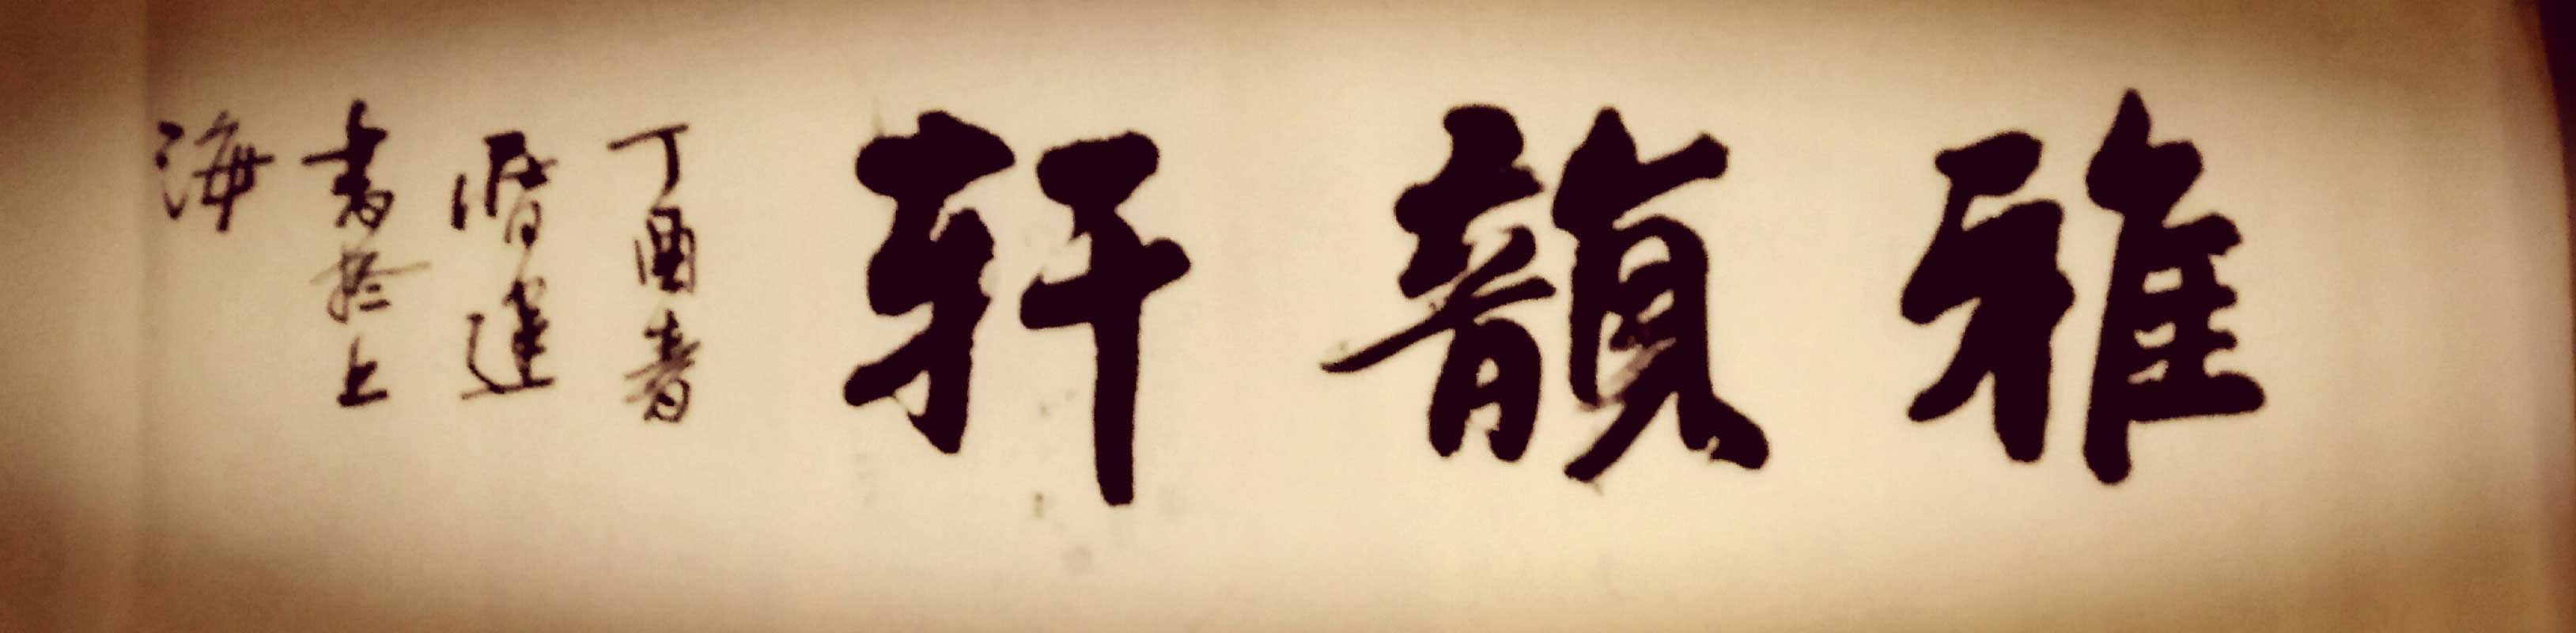 雅韻軒
丁酉春
書於上
海